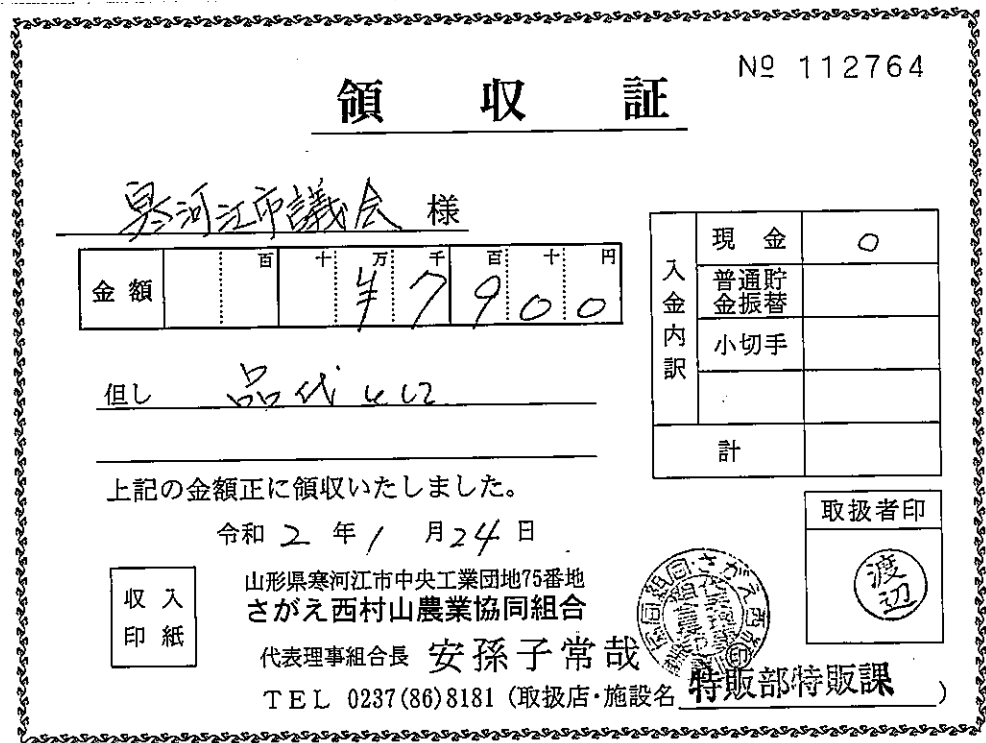 № 112764
領収証
寒河江市議会 様
金額 百 十 万 千 百 十 円
¥7900
但し 品代として
上記の金額正に領収いたしました。
令和 2 年 1 月 24 日
収入
印紙
山形県寒河江市中央工業団地75番地
さがえ西村山農業協同組合
代表理事組合長 安孫子常哉
TEL 0237(86)8181 (取扱店・施設名 特販部特販課 )
入金内訳
現金 ○
普通貯
金振替
小切手
計
取扱者印
渡辺